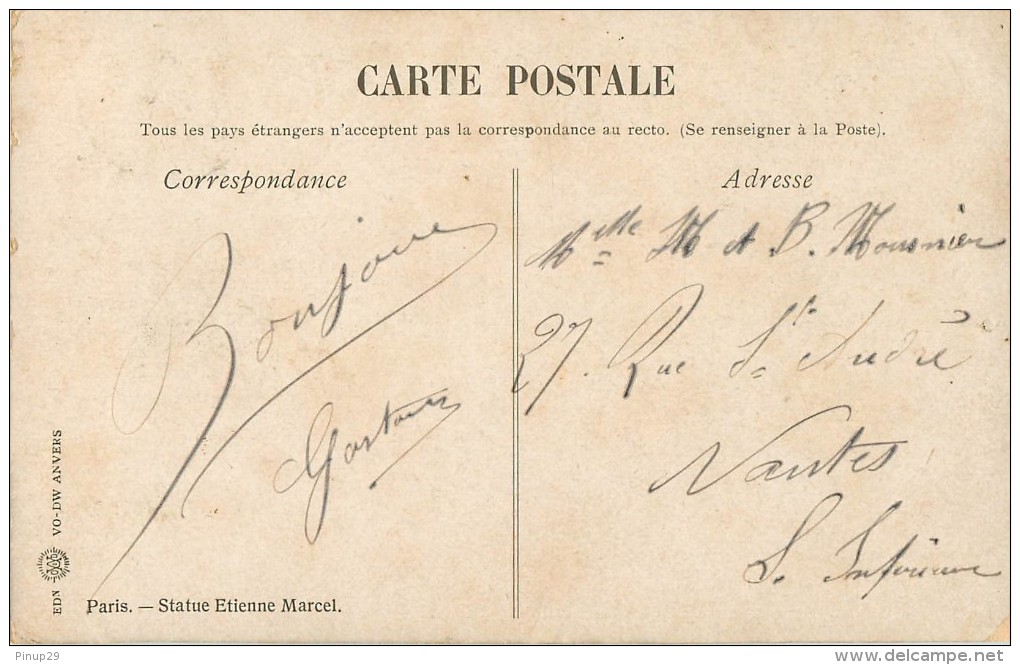 CARTE POSTALE
Tous les pays étrangers n'acceptent pas la correspondance au recto. (Se renseigner à la Poste).
Correspondance
Bonjour
Gaston
Adresse
Melle M et B. Mousnier
27. Rue St André
Nantes
L. Inférieure
EDN VO-DW ANVERS
Paris. — Statue Etienne Marcel.
Pinup29
www.delcampe.net